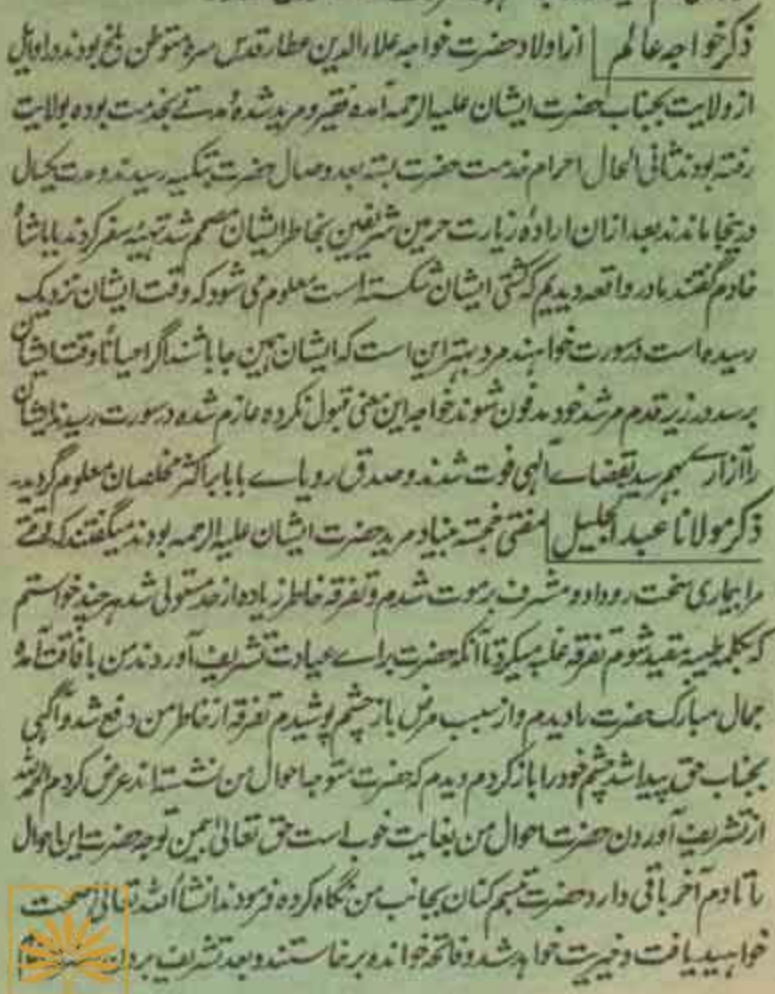 ذکر خواجه عالم از اولاد حضرت خواجه علاءالدین عطار قدس سره متوطن بلخ بودند در اوایل
از ولایت بجناب حضرت ایشان علیه الرحمه آمده فقیر و مرید شده مدتے بخدمت بوده بولایت
رفته بودند ثانی الحال احرام خدمت حضرت بسته بعد وصال حضرت بتکیه رسیدند و مدت یکسال
درینجا ماندند بعد ازان اراده زیارت حرمین شریفین بخاطر ایشان مصمم شد تهیئه سفر کردند بابا شاه
خادم گفتند ما در واقعه دیدیم که کشتی ایشان شکسته است معلوم می شود که وقت ایشان نزدیک
رسیده است در سورت خواهند مرد بهتر این است که ایشان همین جا باشند اگر احیاناً وقت ایشان
برسد در زیر قدم مرشد خود مدفون شوند خواجه این معنی قبول نکرده عازم شده در سورت رسیدند ایشان
را آزار بهم رسید بقضاے الهی فوت شدند و صدق رویاے بابا بر اکثر مخلصان معلوم گردید
ذکر مولانا عبد الجلیل مفتی خجسته بنیاد مرید حضرت ایشان علیه الرحمه بودند میگفتند که وقتے
مرا بیماری سخت رو داد و مشرف بر موت شدم و تفرقه خاطر زیاده از حد مستولی شد هر چند خواستم
که بکلمه طیبه مقید شوم تفرقه غلبه میکرد تا آنکه حضرت براے عیادت تشریف آوردند من بافاقت آمده
جمال مبارک حضرت را دیدم و از سبب مرض باز چشم پوشیدم تفرقه از خاطر من دفع شد و آگهی
بجناب حق پیدا شد چشم خود را باز کردم دیدم که حضرت متوجه احوال من نشسته اند عرض کردم الحمد لله
از تشریف آوردن حضرت احوال من بغایت خوب است حق تعالی بهمین توجه حضرت این احوال
را تا دم آخر باقی دارد حضرت تبسم کنان بجانب من نگاه کرده فرمودند انشاءالله تعالی صحت
خواهید یافت و خیریت خواهد شد و فاتحه خوانده برخاستند و بعد تشریف بردن